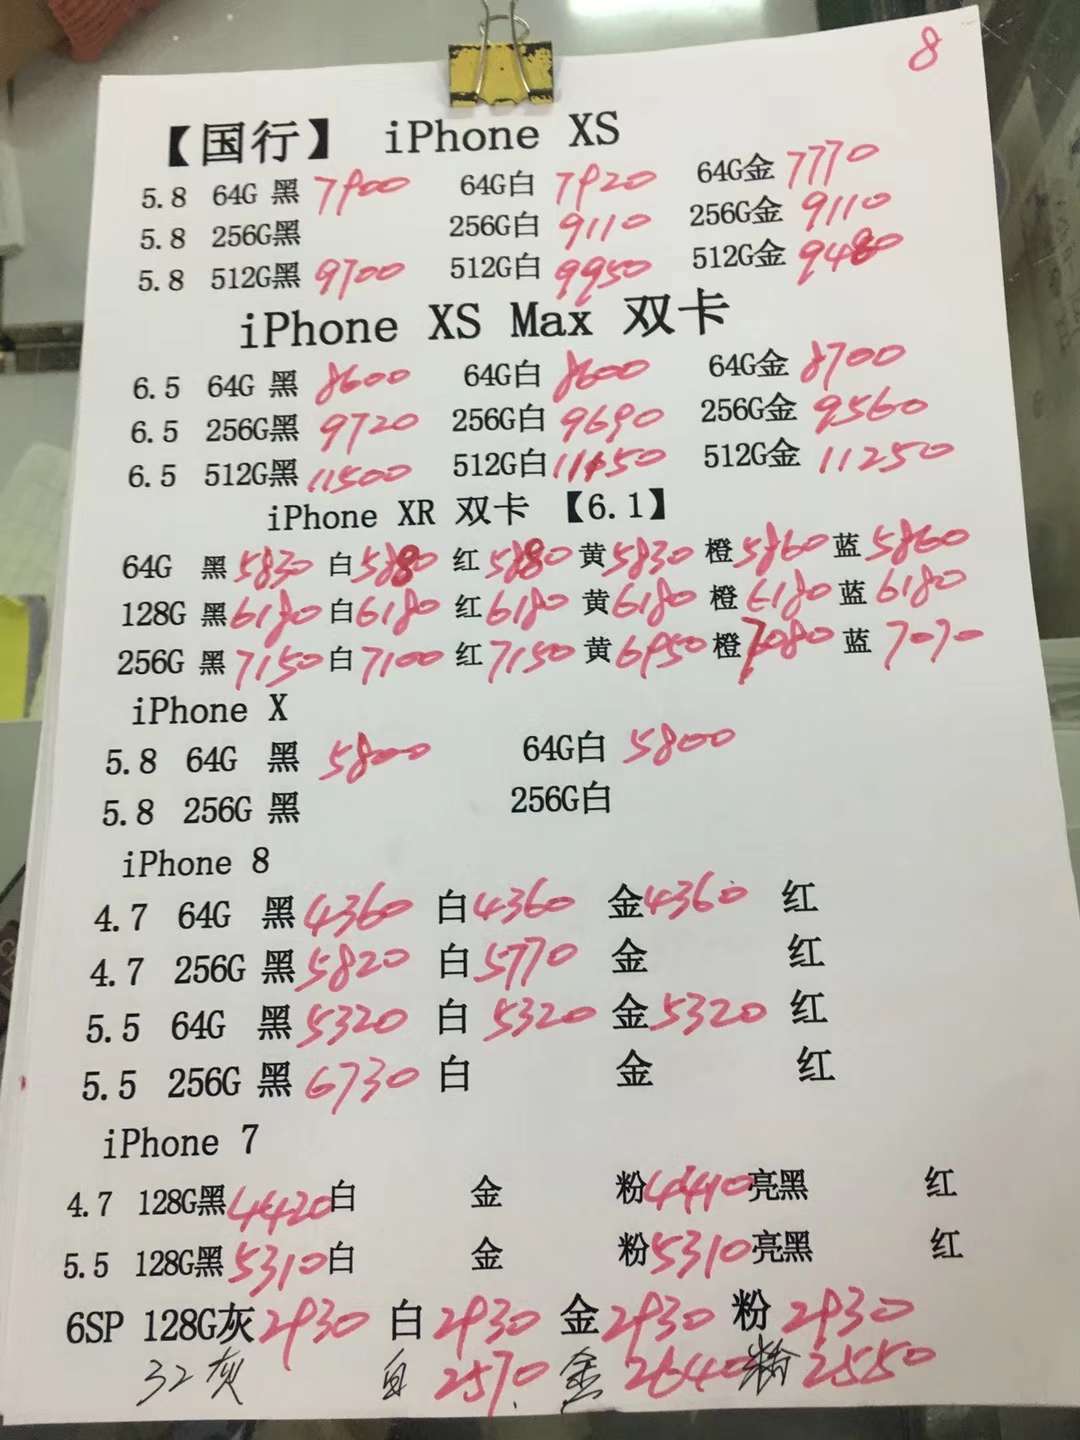 8
【国行】 iPhone XS
5.8 64G 黑 7900 64G白 7920 64G金 7770
5.8 256G黑 256G白 9110 256G金 9110
5.8 512G黑 9700 512G白 9950 512G金 9480
iPhone XS Max 双卡
6.5 64G 黑 8600 64G白 8600 64G金 8700
6.5 256G黑 9720 256G白 9690 256G金 9560
6.5 512G黑 11500 512G白 11150 512G金 11250
iPhone XR 双卡 【6.1】
64G 黑 5830 白 5880 红 5880 黄 5830 橙 5860 蓝 5860
128G 黑 6180 白 6180 红 6180 黄 6180 橙 6180 蓝 6180
256G 黑 7150 白 7100 红 7150 黄 6950 橙 7080 蓝 7070
iPhone X
5.8 64G 黑 5800 64G白 5800
5.8 256G 黑 256G白
iPhone 8
4.7 64G 黑 4360 白 4360 金 4360 红
4.7 256G 黑 5820 白 5770 金 红
5.5 64G 黑 5320 白 5320 金 5320 红
5.5 256G 黑 6730 白 金 红
iPhone 7
4.7 128G黑 4420 白 金 粉 4410 亮黑 红
5.5 128G黑 5310 白 金 粉 5310 亮黑 红
6SP 128G灰 2930 白 2930 金 2930 粉 2930
32 灰 白 2570. 金 2640 粉 2550